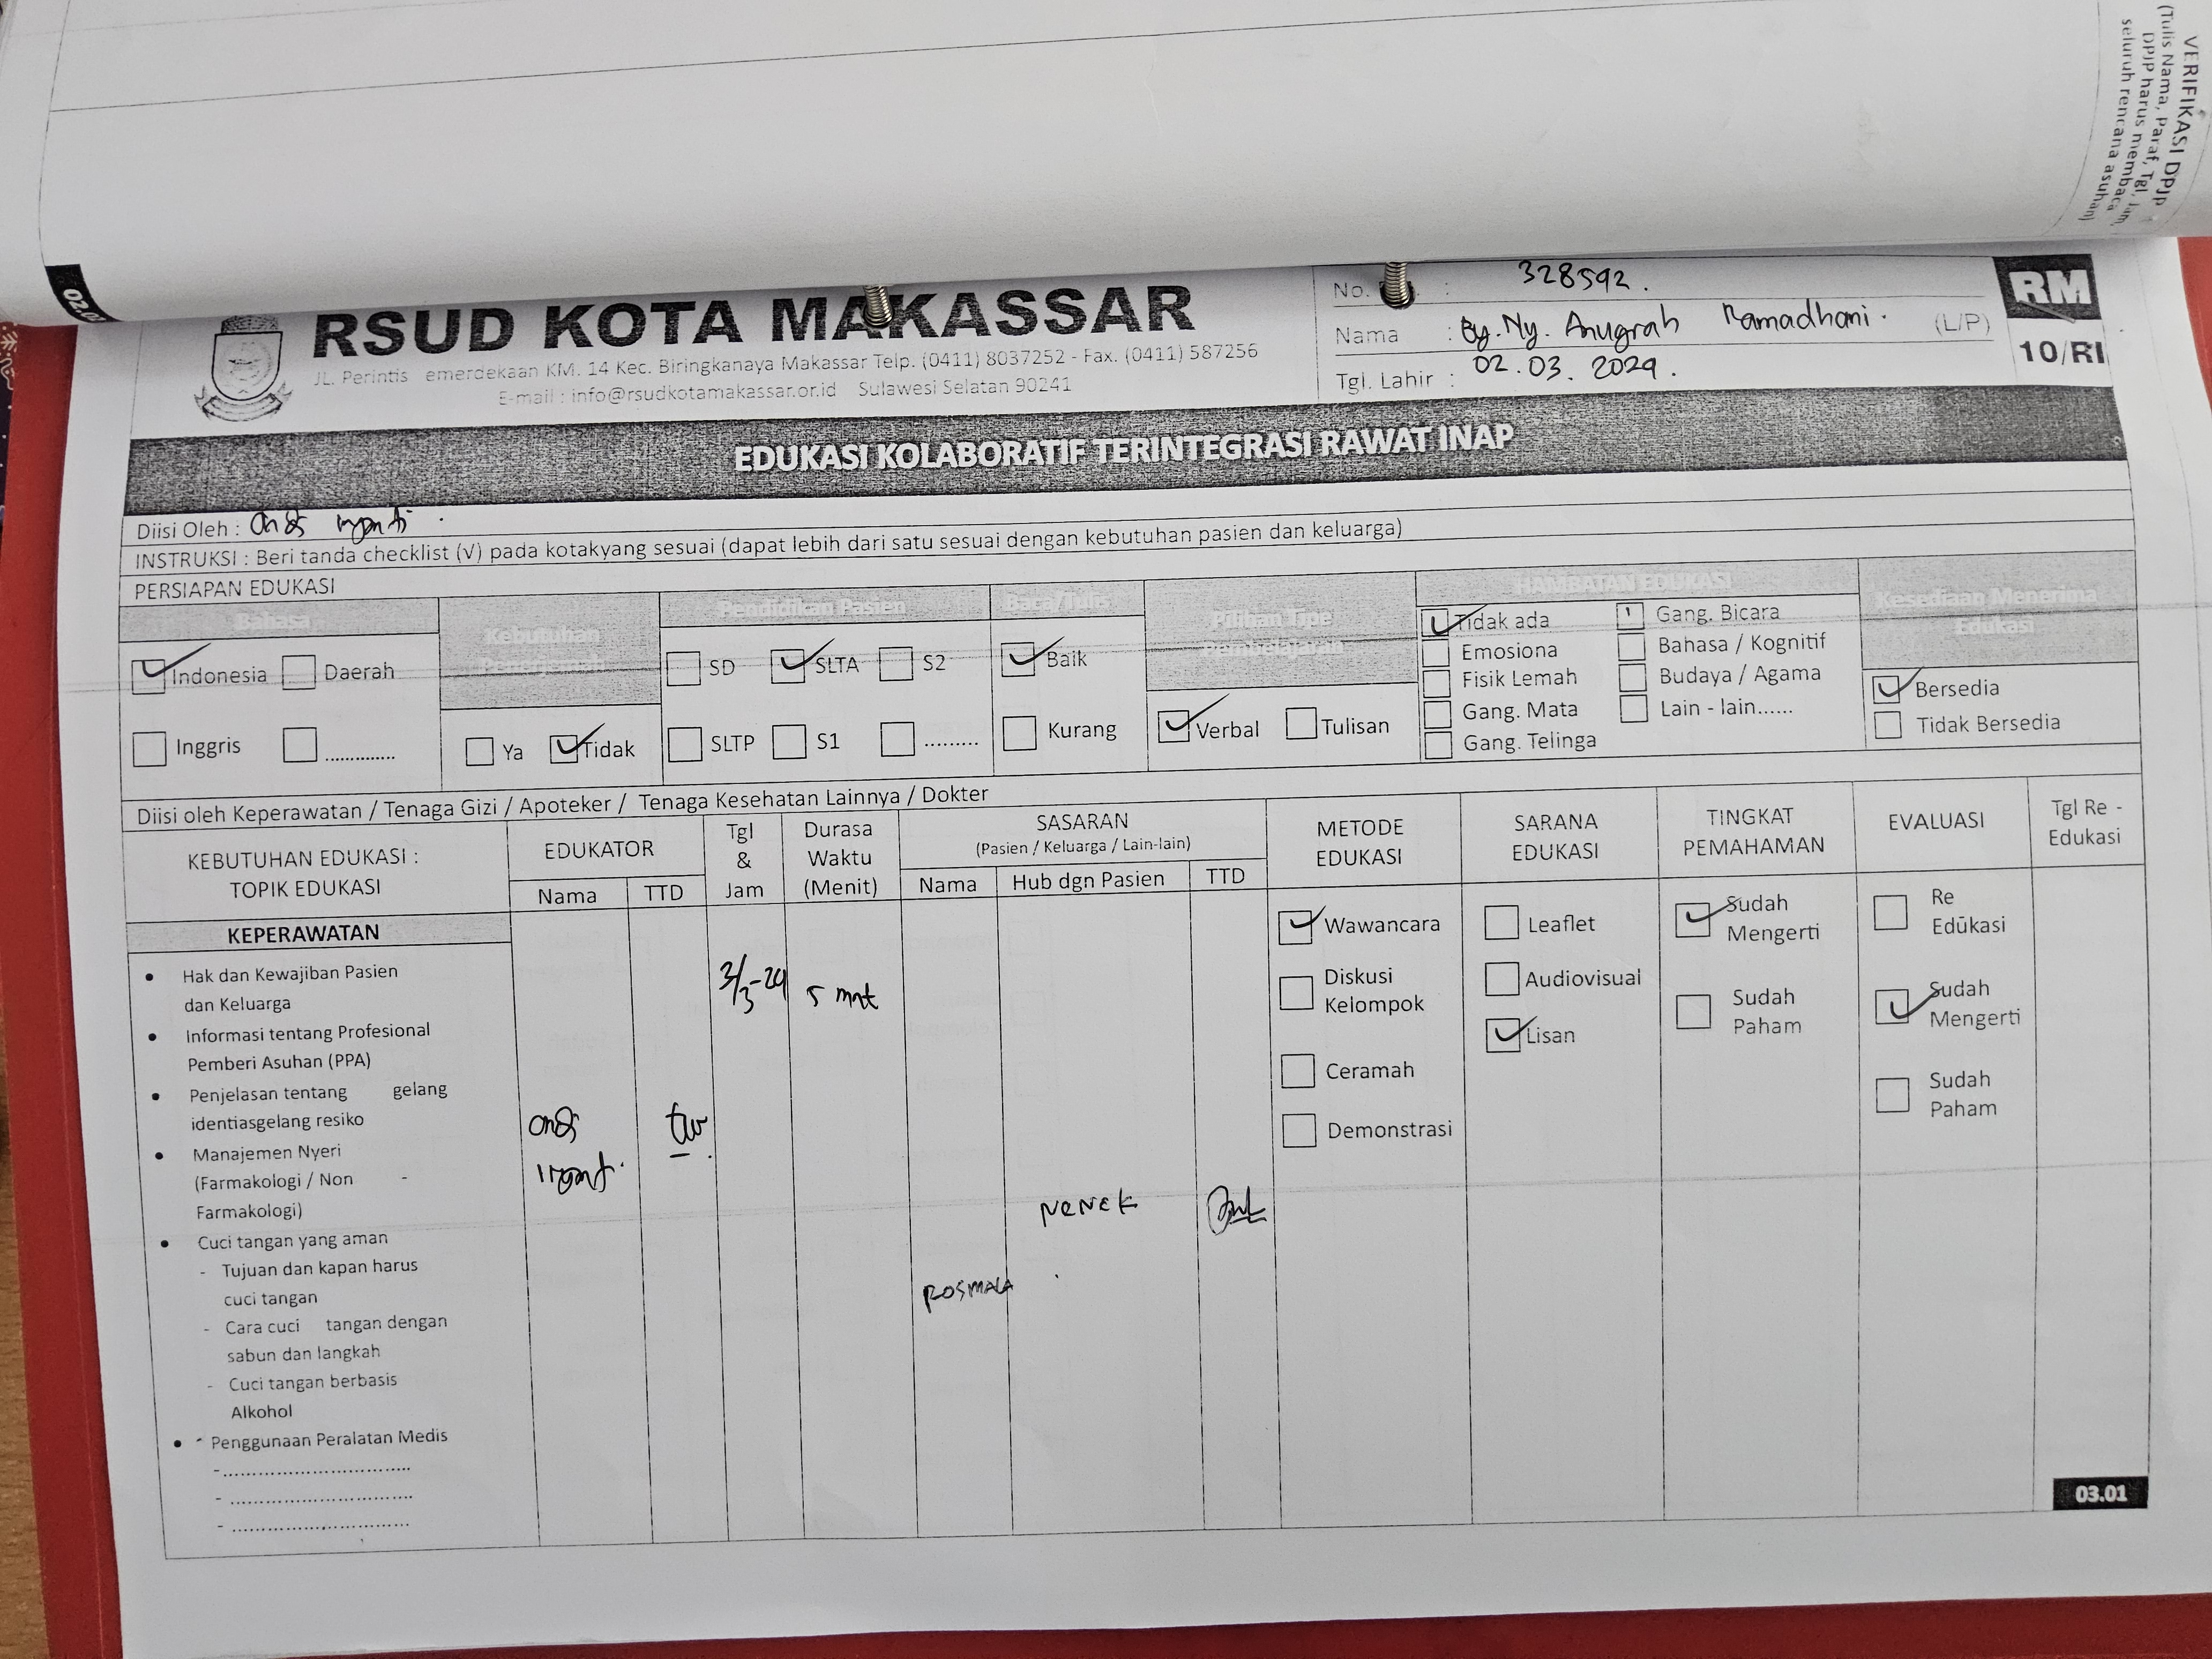 VERIFIKASI DPJP
(Tulis Nama, Paraf, Tgl, Jam,
DPJP harus membaca
seluruh rencana asuhan)
RSUD KOTA MAKASSAR
JL. Perintis emerdekaan KM. 14 Kec. Biringkanaya Makassar Telp. (0411) 8037252 - Fax. (0411) 587256
E-mail : info@rsudkotamakassar.or.id Sulawesi Selatan 90241
No. : 328592.
Nama : By. Ny. Anugrah Ramadhani. (L/P)
Tgl. Lahir : 02.03.2024.
RM
10/RI
EDUKASI KOLABORATIF TERINTEGRASI RAWAT INAP
Diisi Oleh :
INSTRUKSI : Beri tanda checklist (√) pada kotakyang sesuai (dapat lebih dari satu sesuai dengan kebutuhan pasien dan keluarga)
PERSIAPAN EDUKASI
Bahasa
Kebutuhan
Penerjemah
Pendidikan Pasien
Baca/Tulis
Pilihan Tipe
Pembelajaran
HAMBATAN EDUKASI
Kesediaan Menerima
Edukasi
Indonesia Daerah
Inggris ..............
Ya Tidak
SD SLTA S2
SLTP S1 .........
Baik
Kurang
Verbal Tulisan
Tidak ada Gang. Bicara
Emosiona Bahasa / Kognitif
Fisik Lemah Budaya / Agama
Gang. Mata Lain - lain......
Gang. Telinga
Bersedia
Tidak Bersedia
Diisi oleh Keperawatan / Tenaga Gizi / Apoteker / Tenaga Kesehatan Lainnya / Dokter
KEBUTUHAN EDUKASI :
TOPIK EDUKASI
EDUKATOR
Nama TTD
Tgl
&
Jam
Durasa
Waktu
(Menit)
SASARAN
(Pasien / Keluarga / Lain-lain)
Nama Hub dgn Pasien TTD
METODE
EDUKASI
SARANA
EDUKASI
TINGKAT
PEMAHAMAN
EVALUASI
Tgl Re -
Edukasi
KEPERAWATAN
• Hak dan Kewajiban Pasien
dan Keluarga
• Informasi tentang Profesional
Pemberi Asuhan (PPA)
• Penjelasan tentang gelang
identiasgelang resiko
• Manajemen Nyeri
(Farmakologi / Non -
Farmakologi)
• Cuci tangan yang aman
- Tujuan dan kapan harus
cuci tangan
- Cara cuci tangan dengan
sabun dan langkah
- Cuci tangan berbasis
Alkohol
• Penggunaan Peralatan Medis
-................................
- ...............................
- ...............................
3/3-24
5 mnt
ROSMALA
NENEK
Wawancara
Diskusi
Kelompok
Ceramah
Demonstrasi
Leaflet
Audiovisual
Lisan
Sudah
Mengerti
Sudah
Paham
Re
Edukasi
Sudah
Mengerti
Sudah
Paham
03.01